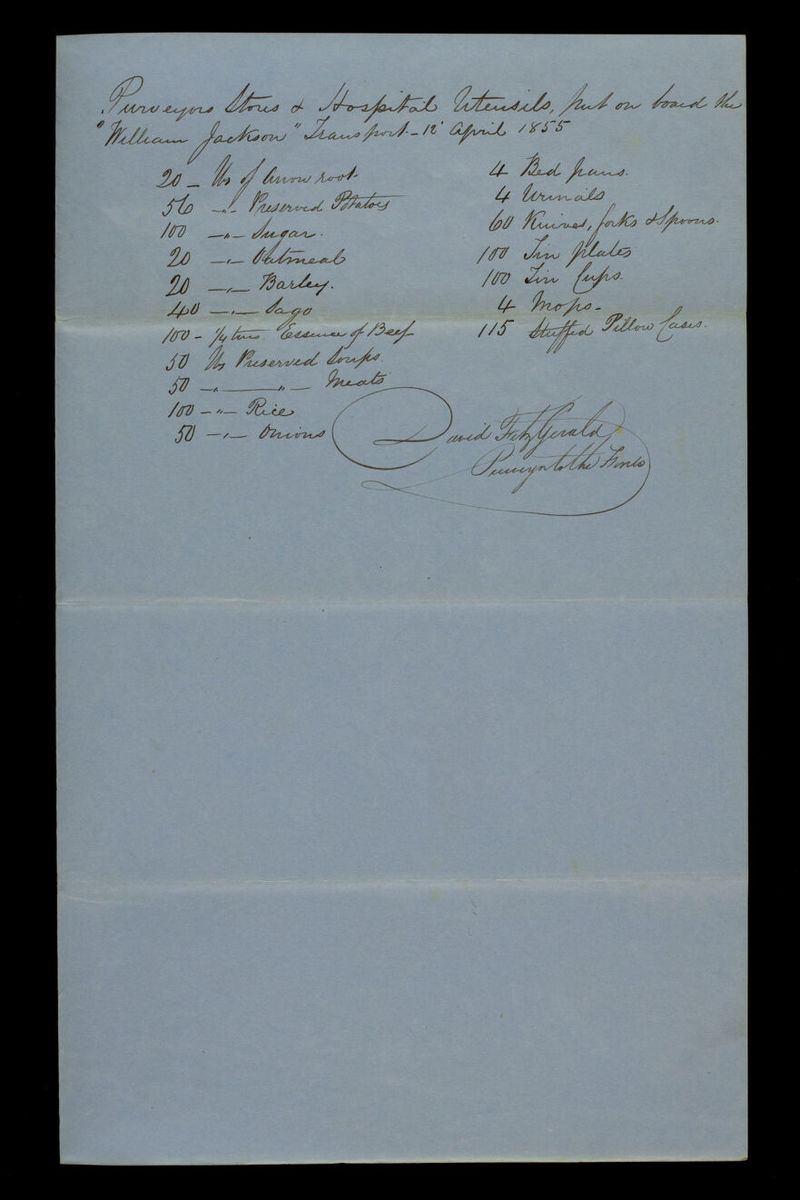 Purveyors Stores & Hospital Utensils, put on board the
"William Jackson" Transport - 12 April 1855
20 - lbs of Arrow root
56 -"- Preserved Potatoes
100 -"- Sugar.
20 -"- Oatmeal
20 -"- Barley.
40 -"- Sago
100 - 1/4 tins. Essence of Beef
50 lbs Preserved Soups.
50 -"- -"- Meats
100 -"- Rice
50 -"- Onions
4 Bed pans.
4 Urinals
60 Knives, forks & Spoons.
100 Tin plates
100 Tin Cups.
4 Mops -
115 Stuffed Pillow Cases.
David FitzGerald
Purveyor to the Forces